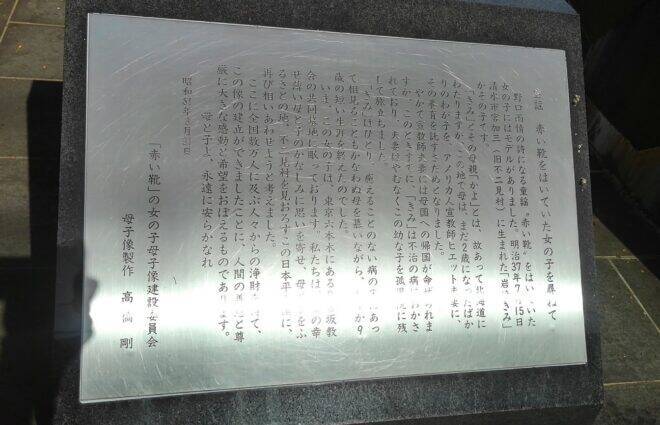 実話 赤い靴をはいていた女の子を尋ねて
野口雨情の詩になる童謡“赤い靴”をはいていた
女の子にはモデルがありました。明治37年7月15日
清水市宮加三(旧不二見村)に生まれた「岩崎きみ」
がその子です。
「きみ」とその母親「かよ」とは、故あって北海道に
わたりますが、この地で母は、まだ2歳になったばか
りのわが子を、アメリカ人宣教師ヒュエット夫妻に、
その養育を託すためとなりました。
やがて宣教師夫妻には母国への帰国が命ぜられま
すが、このときすでに、「きみ」は不治の病におかさ
れており、夫妻はやむなくこの幼な子を孤児院に残
して旅立ちました。
「きみ」はひとり、癒えることのない病の床にあっ
て相見ることもかなわぬ母を慕いながら、わずか9
歳の短い生涯を終えたのでした。
いま、この女の子は、東京六本木にある鳥居坂教
会の共同墓地に眠っております。私たちは、この幸
せ薄い母と子のかなしみに思いを寄せ、母のふ
るさとの地、不二見村を見おろすこの日本平に、
再び相いあわせようと考えました。
ここに全国数万人に及ぶ人々からの浄財を得て、
この像の建立ができましたことに、人間の善意と尊
厳に大きな感動と希望をおぼえるものであります。
母と子よ、永遠に安らかなれ
昭和61年3月31日
「赤い靴」の女の子母子像建設委員会
母子像製作 高橋 剛